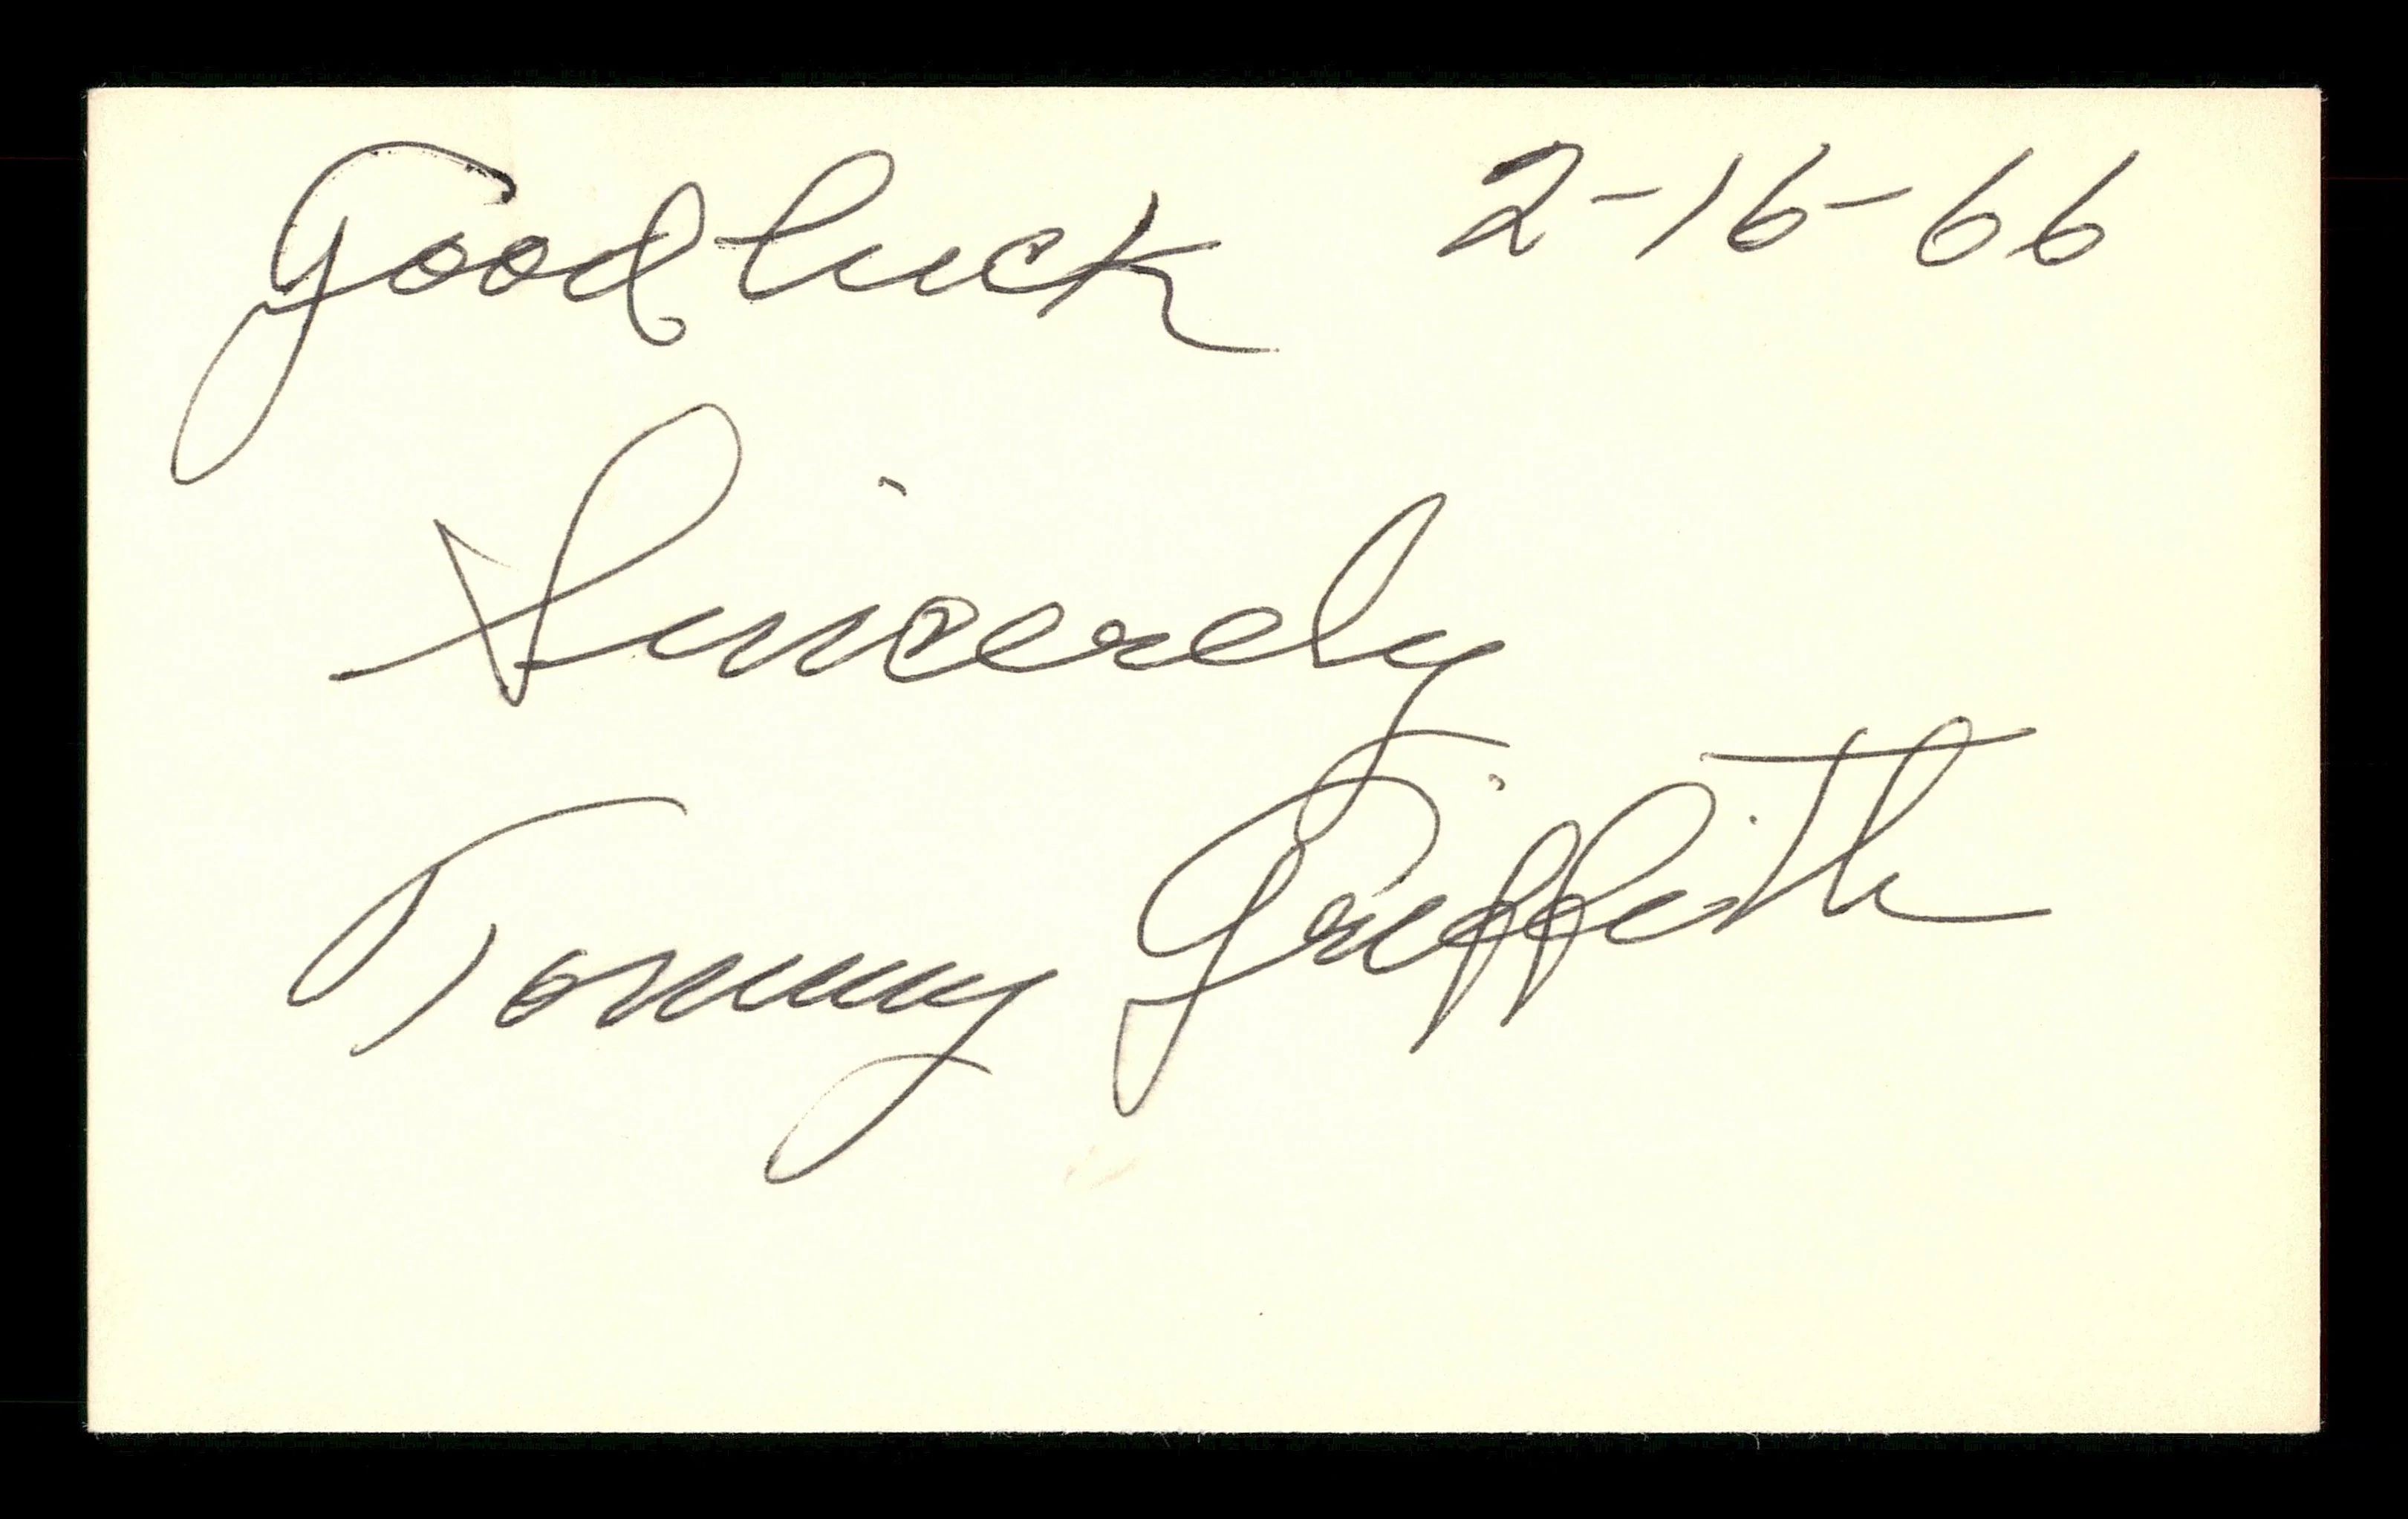 Good luck 2-16-66
Sincerely
Tommy Griffith